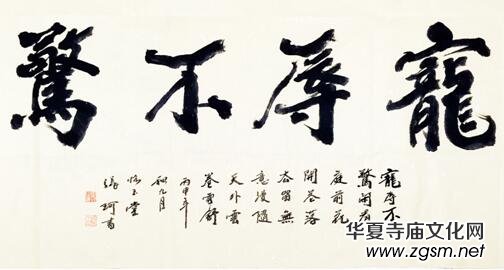 寵辱不驚
寵辱不
驚閑看
庭前花
開花落
去留無
意漫隨
天外雲
卷雲舒
丙申年
秋九月
玉堂
張珂書
华夏寺庙文化网
www.zgsm.net